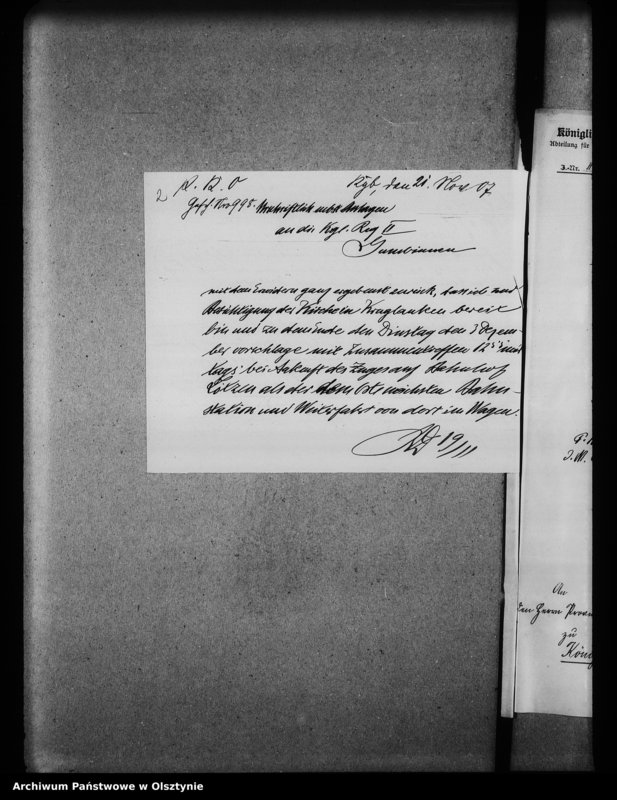 2 P. K. O
Kgb, den 21. Nov 07
Gesch. Nro 998. Urschriftlich nebst Anlagen
an die Kgl. Reg II
Gumbinnen
mit dem Erwidern ganz ergebenst zurück, dass ich zur
Besichtigung der Kirche in Kruglanken bereit
bin und zu dem Ende den Dienstag den 3 Dezem-
ber vorschlage mit Zusammentreffen 12 mit
tags bei Ankunft des Zuges auf Bahnhof
Lötzen als der dem Orte nächsten Bahn-
station und Weiterfahrt von dort im Wagen.
19/11
Königli
Abteilung für
J.-Nr.
An
den Herrn Provin
zu
König
Archiwum Państwowe w Olsztynie